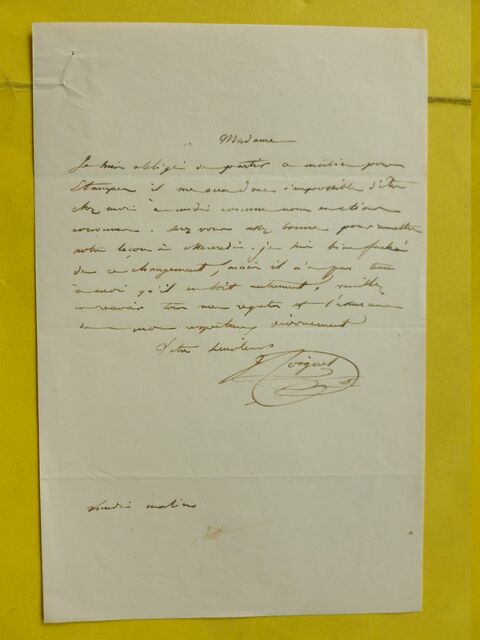 Madame
Je suis obligé de partir ce matin pour
Etampes il me sera donc impossible d'être
chez moi à midi comme nous en étions
convenus. Soyez assez bonne pour remettre
notre leçon à Mercredi. je suis bien fâché
de ce changement, mais il n'a pas tenu
à moi qu'il en soit autrement, veuillez
recevoir tous mes regrets et l'assurance
de mon respectueux dévouement
Votre serviteur
J Coignet
Vendredi matin